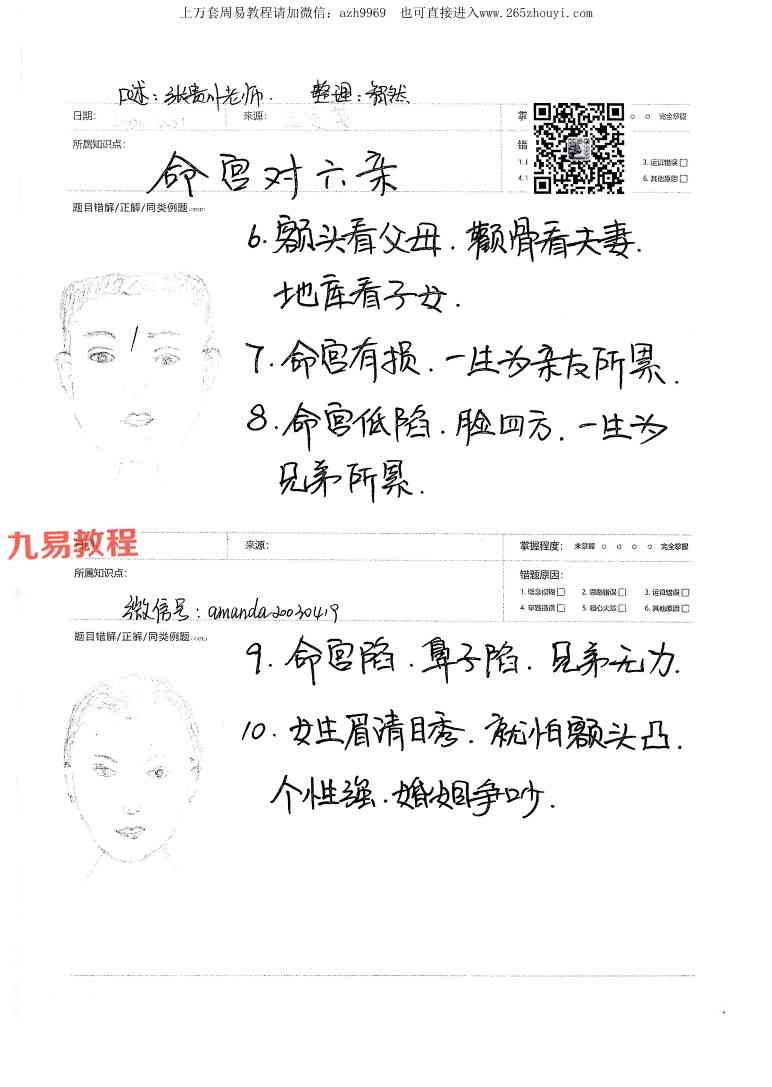 上万套周易教程请加微信：azh9969 也可直接进入www.265zhouyi.com
口述：张贵川老师. 整理：智然
日期： 来源： 掌 完全掌握
所属知识点： 错
3. 运算错误
6. 其他原因
命宫对六亲
题目错解/正解/同类例题
6. 额头看父母. 颧骨看夫妻.
地库看子女.
7. 命宫有损. 一生为亲友所累.
8. 命宫低陷. 脸四方. 一生为
兄弟所累.
九易教程
来源： 掌握程度： 未掌握 完全掌握
所属知识点： 错题原因：
1. 概念模糊 2. 思路错误 3. 运算错误
4. 审题错误 5. 粗心大意 6. 其他原因
微信号：amanda20030419
题目错解/正解/同类例题
9. 命宫陷. 鼻子陷. 兄弟无力.
10. 女生眉清目秀. 就怕额头凸.
个性强. 婚姻争吵.